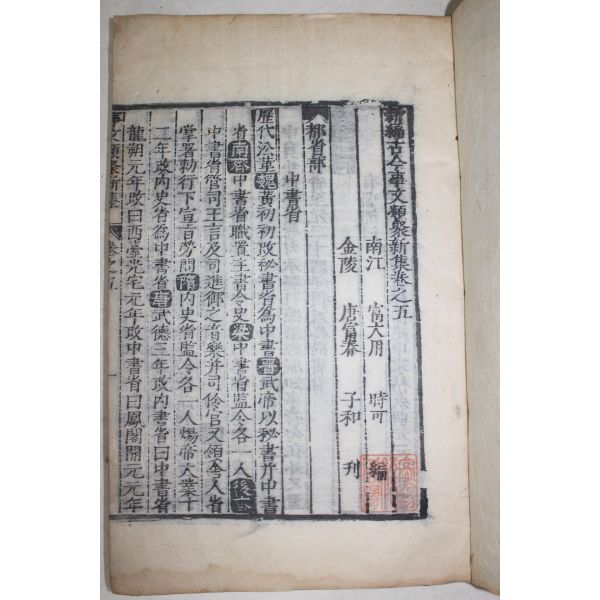 新編古今事文類聚新集卷之五
南江 富大用 時可 編
金陵 唐富春 子和 刊
都省部
中書省
歷代沿革魏黃初初改秘書省為中書晋武帝以秘書并中書
省南齊中書省職置主書令史梁中書省監令各一人後魏
中書省管司王言及司進御之音樂并司伶官又領舍人省
掌署勑行下宣旨勞問隋內史省監令各一人煬帝大業十
二年改內史省為中書省唐武德三年改內書省曰中書省
龍朔元年改曰西臺光宅元年改中書省曰鳳閣開元元年
事文類聚新集 卷之五